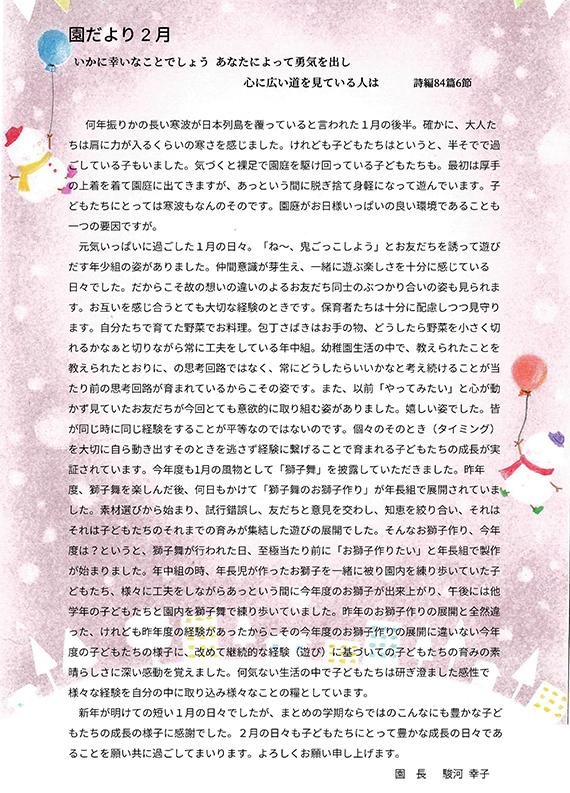 園だより２月
いかに幸いなことでしょう あなたによって勇気を出し
心に広い道を見ている人は　　詩編84篇6節
何年振りかの長い寒波が日本列島を覆っていると言われた１月の後半。確かに、大人た
ちは肩に力が入るくらいの寒さを感じました。けれども子どもたちはというと、半そでで過
ごしている子もいました。気づくと裸足で園庭を駆け回っている子どもたちも。最初は厚手
の上着を着て園庭に出てきますが、あっという間に脱ぎ捨て身軽になって遊んでいます。子
どもたちにとっては寒波もなんのそのです。園庭がお日様いっぱいの良い環境であることも
一つの要因ですが。
元気いっぱいに過ごした１月の日々。「ね～、鬼ごっこしよう」とお友だちを誘って遊び
だす年少組の姿がありました。仲間意識が芽生え、一緒に遊ぶ楽しさを十分に感じている
日々でした。だからこそ故の想いの違いのよるお友だち同士のぶつかり合いの姿も見られま
す。お互いを感じ合うとても大切な経験のときです。保育者たちは十分に配慮しつつ見守り
ます。自分たちで育てた野菜でお料理。包丁さばきはお手の物、どうしたら野菜を小さく切
れるかなぁと切りながら常に工夫をしている年中組。幼稚園生活の中で、教えられたことを
教えられたとおりに、の思考回路ではなく、常にどうしたらいいかなと考え続けることが当
たり前の思考回路が育まれているからこその姿です。また、以前「やってみたい」と心が動
かず見ていたお友だちが今回とても意欲的に取り組む姿がありました。嬉しい姿でした。皆
が同じ時に同じ経験をすることが平等なのではないのです。個々のそのとき（タイミング）
を大切に自ら動き出すそのときを逃さず経験に繋げることで育まれる子どもたちの成長が実
証されています。今年度も1月の風物として「獅子舞」を披露していただきました。昨年
度、獅子舞を楽しんだ後、何日もかけて「獅子舞のお獅子作り」が年長組で展開されていま
した。素材選びから始まり、試行錯誤し、友だちと意見を交わし、知恵を絞り合い、それは
それは子どもたちのそれまでの育みが集結した遊びの展開でした。そんなお獅子作り、今年
度は？というと、獅子舞が行われた日、至極当たり前に「お獅子作りたい」と年長組で製作
が始まりました。年中組の時、年長児が作ったお獅子を一緒に被り園内を練り歩いていた子
どもたち、様々に工夫をしながらあっという間に今年度のお獅子が出来上がり、午後には他
学年の子どもたちと園内を獅子舞で練り歩いていました。昨年のお獅子作りの展開と全然違
った、けれども昨年度の経験があったからこその今年度のお獅子の展開に違いない今年
度の子どもたちの様子に、改めて継続的な経験（遊び）に基づいての子どもたちの育みの素
晴らしさに深い感動を覚えました。何気ない生活の中で子どもたちは研ぎ澄ました感性で
様々な経験を自分の中に取り込み様々なことの糧としています。
新年が明けての短い１月の日々でしたが、まとめの学期ならではのこんなにも豊かな子ど
もたちの成長の様子に感謝でした。２月の日々も子どもたちにとって豊かな成長の日々であ
ることを願い共に過ごしてまいります。よろしくお願い申し上げます。
園　長　　駿河 幸子